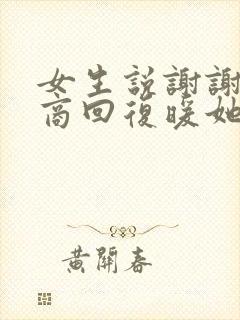 女生說謝謝
商回復暖她
黃開春